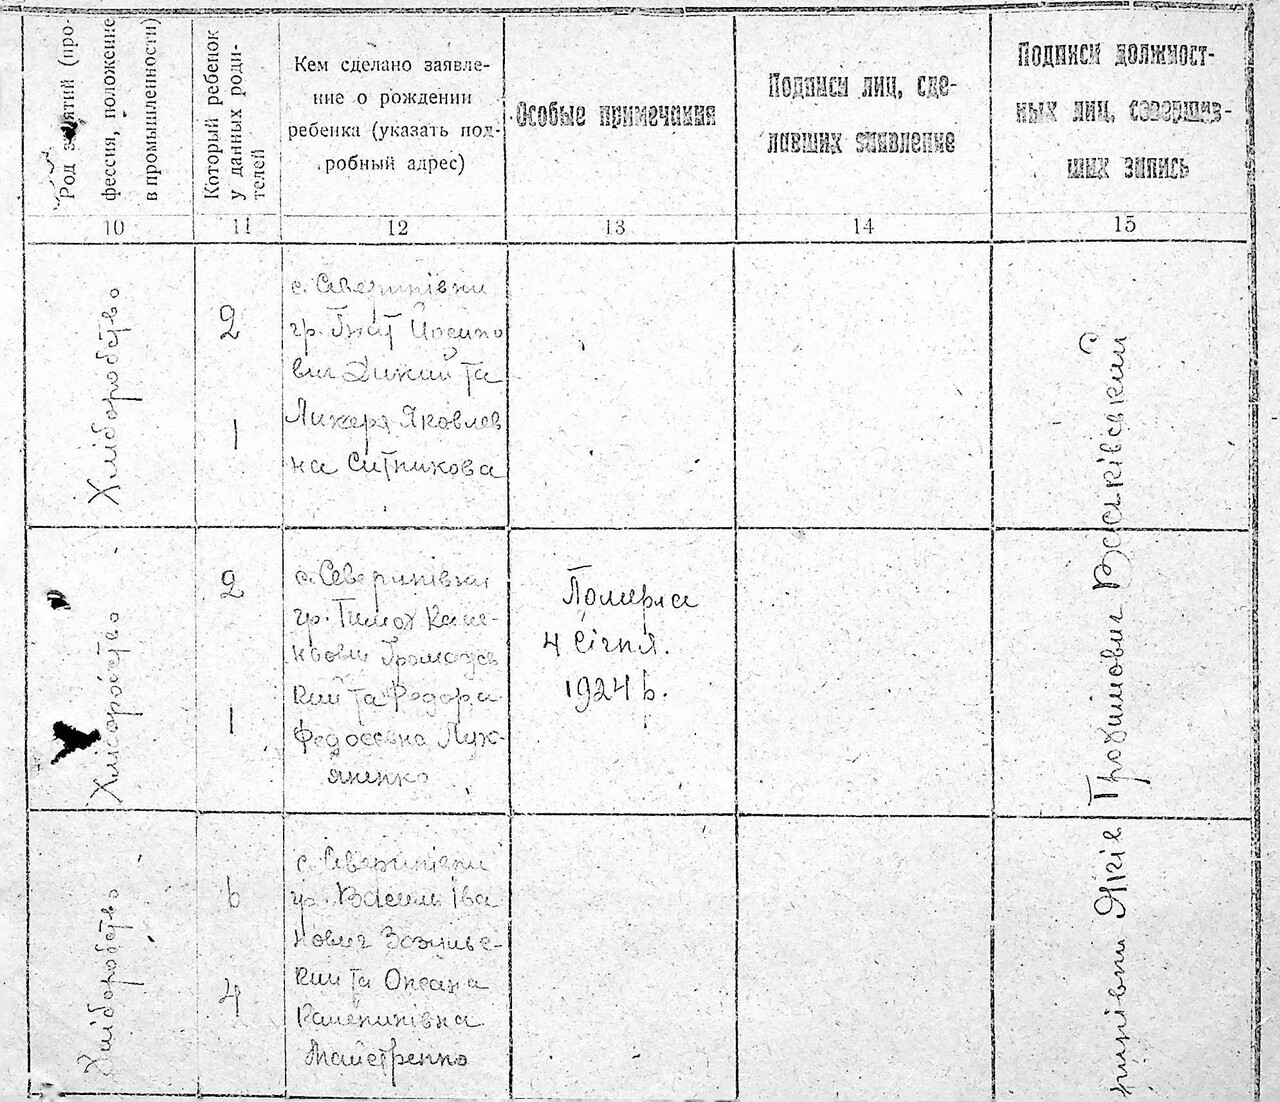 Род занятий (про-
фессия, положение
в промышленности)
Который ребенок
у данных роди-
телей
Кем сделано заявле-
ние о рождении
ребенка (указать под-
робный адрес)
Особые примечания
Подписи лиц, сде-
лавших заявление
Подписи должност-
ных лиц, совершив-
ших запись
10
11
12
13
14
15
Хліборобство
2
1
с. Северинівки
гр. Гнат Йосипо
вич Дикий та
Ликера Яковлев
на Ситникова
Хліборобство
2
1
с. Северинівки
гр. Тимох
Громадсь
кий та Федора
Федосевна Лук-
яненко
Помирла
4 Січня.
1924 р.
Хліборобство
6
4
с. Северинівки
гр. Василь Іва
нович
кий та Оксана
Каленинівна
Майстренко
Яків Трохимович Васьківський